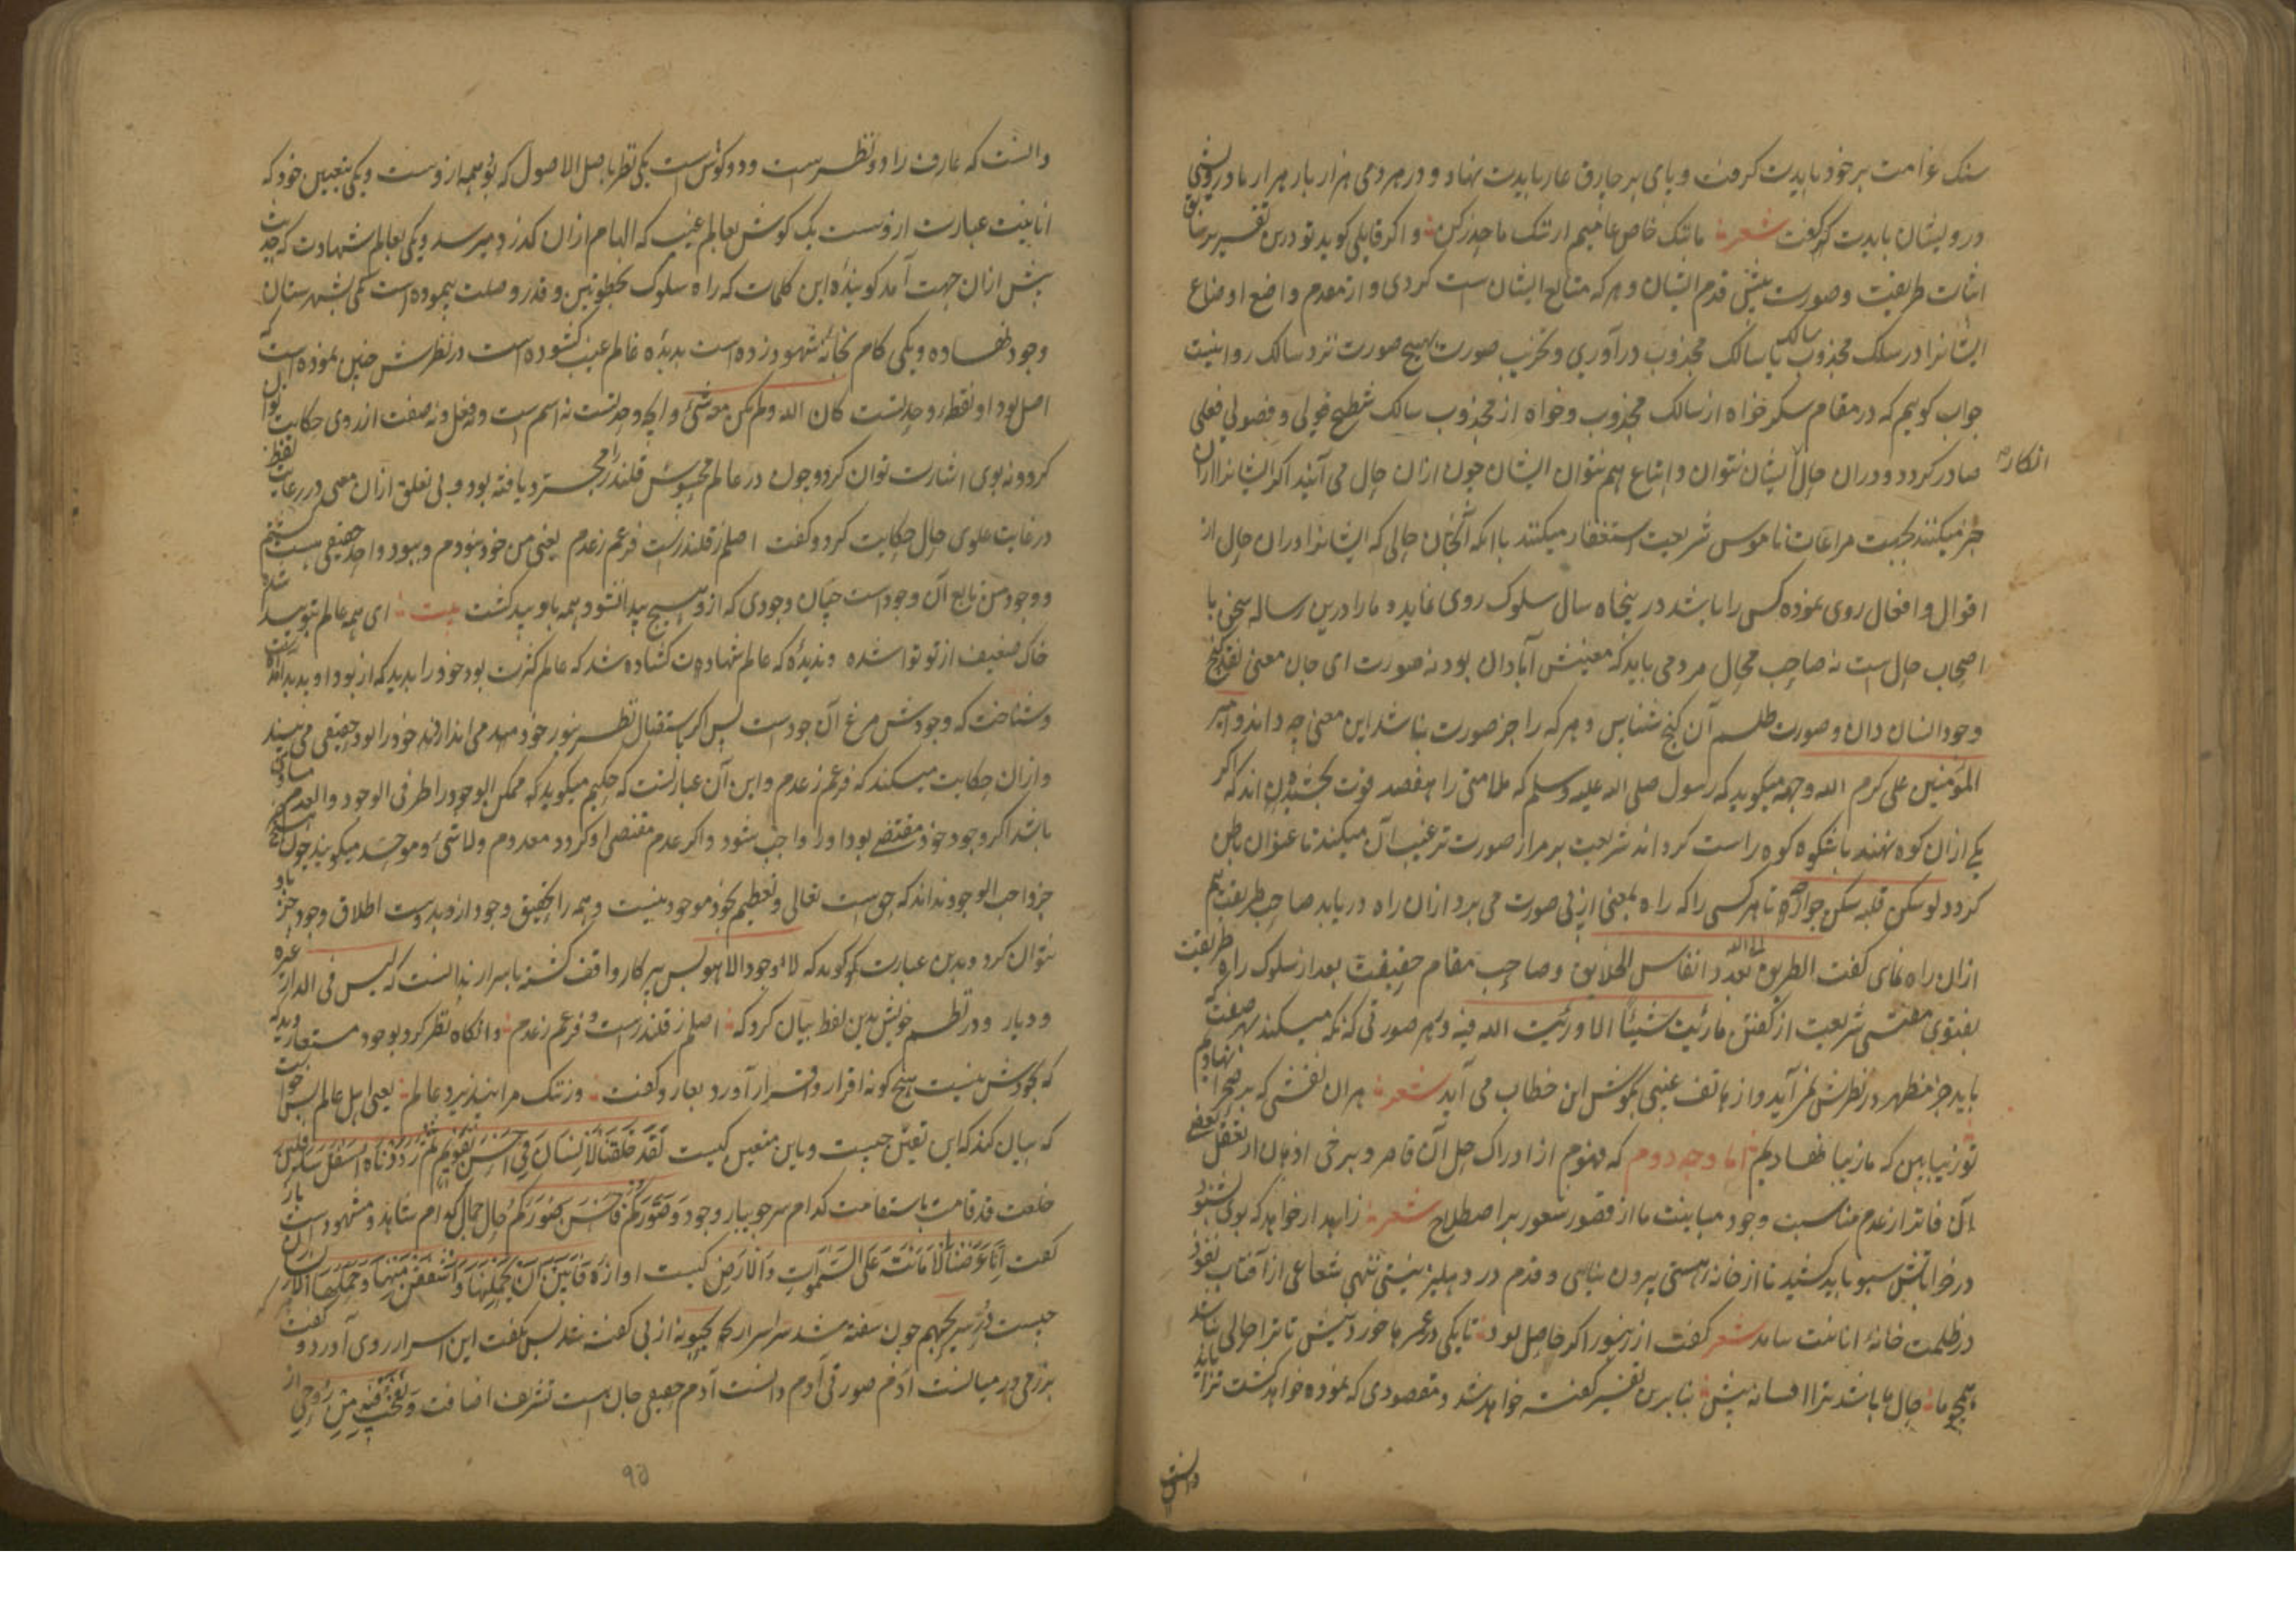 سنک غرامت بر خود بایدت کرفت و پای بر چارق عار بایدت نهاد و در هر دمی هزار بار هرار با درویشی
درویشان بایدت که گفت شعر ما تنک خاص عامیم از تنک ما حذر کن و اکر قایلی کوید تو درین تفسیر بر خلاف
اثبات طریقت و صورت پیش قدم ایشان و هر که متابع ایشان است کردی و از مقدم واضع اوضاع
ایشانرا در سلک مجذوب سالک یا سالک مجذوب درآوری و تخریب صورت هیچ صورت نزد سالک روا نیست
جواب کوییم که در مقام سکر خواه از سالک مجذوب و خواه از مجذوب سالک شطح قولی و فضولی فعلی
صادر کردد و دران حال ایشان نتوان و اتباع هم نتوان ایشان چون ازان حال می آیند اکر ایشانرا ازان
انکار
خبر میکنند بجهت مراعات ناموس شریعت استغفار میکنند با انکه آنچنان حالی که ایشانرا دران حال از
اقوال و افعال روی نموده کسی را باشد در پنجاه سال سلوک روی نماید و ما را درین رساله سخن با
اصحاب حال است نه صاحب محال مردمی باید که معنیش آبادان بود نه صورت ای جان معنی نقد کنج
وجود انسان دان و صورت طلسم آن کنج شناس و هر که را جز صورت نباشد این معنی چه داند و امیر
المؤمنین علی کرم الله وجهه میکوید که رسول صلی الله علیه وسلم که ملامتی را بمقصد قوت بخشیدن اند که اکر
یکی ازان کوه نهند باشکوه کوه راست کرد اند شریعت بر مراز صورت ترغیب آن میکند تا عنوان باطن
کردد لو سکن قلبه سکن جوارحه تا هر کسی را که راه بمعنی از پی صورت می برد ازان راه دریابد صاحب طریقت هم
ازان راه نمای کفت الطریق الی الله بعدد انفاس الخلایق و صاحب مقام حقیقت بعد از سلوک راه طریقت
بفتوی مفتی شریعت از کفتن ما رئیت شیئا الا و رئیت الله فیه و بهر صورتی که نکه میکند بهر صفت که
باید جز مظهر در نظرش نمی آید و از هاتف غیبی بکوش این خطاب می آید شعر هر ان نقشی که بر صحرا نهادیم
تو زیبا بین که ما زیبا نهادیم اما وجه دوم که فهوم از ادراک حل آن قاصر و برخی اذهان از تعقل بعضی
آن فاتر از عدم مناسبت وجود مباینت ما از قصور شعور بر اصطلاح شعر زاهد ار خواهد که بوی بشنود
در خراباتش سبو باید کشید تا از خانه هستی بیرون نیایی و قدم در دهلیز نیستی ننهی شعاعی از آفتاب نفوذ
در ظلمت خانه انانیت نیامد شعر کفت از زنبور اکر حاصل بود با یکی در عمر ها خورد نیش تا ترا حالی نباشد
همچو ما حال ما باشد ترا افسانه پیش بنابرین تفسیر کفته خواهد شد و مقصودی که نموده خواهد کشت ترا باید
دانست
دانست که عارف را دو نظر است و دو کوش است یکی نظر باصل الاصول که بود همه ازوست و یکی بتعین خود که
انانیت عبارت ازوست یک کوش بعالم غیب که الهام ازان کذرد میرسد و یکی بعالم شهادت که حدیث
پیش ازان جهت آمد کوینده این کلمات که راه سلوک بخطوتین و قد وصلت پیموده است یکی بشهرستان
وجود نهاده و یکی کام بخانه شهود زده است بدیده عالم غیب کشوده است در نظرش چنین نموده است که
اصل بود او نقطه وحدتست کان الله ولم یکن معه شئ و انکه وحدتست نه اسم است و نه فعل و نه صفت از روی حکایت توان
کرد و نه بوی اشارت توان کرد و چون در عالم محسوس قلندر را مجرد یافته بود و بی تعلق ازان معنی در رعایت لفظ
در غایت علوی حال حکایت کرد و کفت اصلم ز قلندرست فرعم ز عدم یعنی من خود نبودم و ببود واحد حقیقی هست شدم
و وجود من تابع آن وجود است چنان وجودی که ازو هیچ پیدا نشود و همه باو پید کشت بیت ای همه عالم بتو پیدا شده
خاک ضعیف از تو توانا شده و بدیده که عالم شهادت کشاده شد که عالم کثرت بود خود را بدید که از بود او پدید آمد
و شناخت که وجودش مرغ آن جودست پس اکر استقبال نظر بنور خود مهد می اندازد نه خود را بود حقیقی می بیند
و ازان حکایت میکند که فرعم ز عدم و این آن عبارتست که حکیم میکوید که ممکن الوجود را طرفی الوجود والعدم مساوی
باشد اکر وجود خود مقتضی بود او را واجب شود و اکر عدم مقتضی او کردد معدوم و لا شئ و موحد میکوید چون
جز واجب الوجود نداند که حق است تعالی و تعظیم بخود موجود نیست و همه را بتحقیق وجود ازو بدوست اطلاق وجود جز باو
نتوان کرد و بدین عبارت کوید که لا وجود الا هو پس پرکار واقف کشته باسرار بدانست که لیس فی الدار غیره
و دیار و در نظم خویش بدین لفظ بیان کرد که اصلم ز قلندرست و فرعم ز عدم و انکاه نظر کرد بوجود مستعار دید که
که بخودش نیست هیچ کونه اقرار و قرار آورد بعار و کفت وز ننک مرا نپذیرد عالم یعنی اهل عالم پس خواست
که بیان کند که این تعین چیست و باین متعین کیست لَقَدْ خَلَقْنَا الْإِنْسَانَ فِي أَحْسَنِ تَقْوِيمٍ ثُمَّ رَدَدْنَاهُ أَسْفَلَ سَافِلِينَ
خلعت قد قامت باستقامت کدام سرو جویبار وجود وَصَوَّرَكُمْ فَأَحْسَنَ صُوَرَكُمْ حال جمال کدام شاهد و مشهود است باز
کفت إِنَّا عَرَضْنَا الْأَمَانَةَ عَلَى السَّمَوَاتِ وَالْأَرْضِ کیست اوازه فَأَبَيْنَ أَنْ يَحْمِلْنَهَا وَأَشْفَقْنَ مِنْهَا وَحَمَلَهَا الْإِنْسَانُ
چیست در سر یحبهم چون سفته شد سراسرار یحبونه از پی کفته شد پس بکفت این اسرار روی آورد و کفت
برزخی در میانست آدم صورتی آدم دانست آدم حقیقی جان است تشریف اضافت وَنَفَخْتُ فِيهِ مِنْ رُوحِي از
۹۵